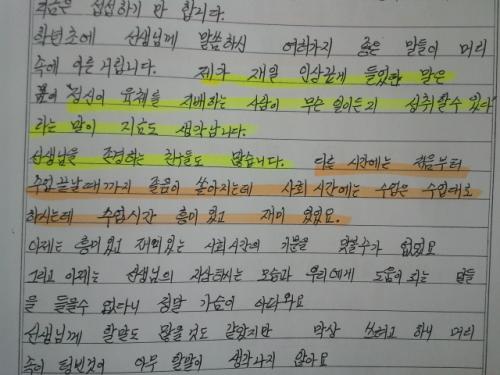 석습은 섭섭하기 만 합니다.
학년초에 선생님께 말씀하신 여러가지 좋은 말들이 머리
속에 아른거립니다. 제가 재일 인상깊게 들었던 말은
"정신이 육체를 지배하는 사람이 무슨 일이든지 성취할수 있다"
라는 말이 지효도 생각납니다.
선생님을 존경하는 친구들도 많습니다. 다른 시간에는 처음부터
수업끝날때까지 졸음이 쏟아지는데 사회시간에는 수업은 수업대로
하시는데 수업시간 흥미있고 재미 있었요.
이제는 흥미있고 재미있는 사회시간의 기분을 맛볼수가 없었요
그리고 이제는 선생님의 자상하시는 모습과 우리에게 도움이 되는 말들
을 들을수 없다니 정말 가슴이 아파와요
선생님께 할말도 많을것도 같았지만 막상 쓰려고 하니 머리
속이 텅빈것이 아무 할말이 생각나지 않아요